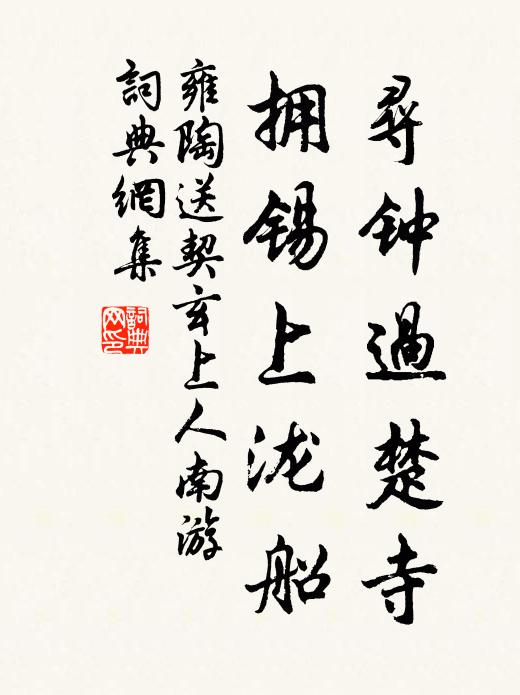 尋钟過楚寺
拥锡上泷船
雍陶送契玄上人南游
詞典網集
詞典网印